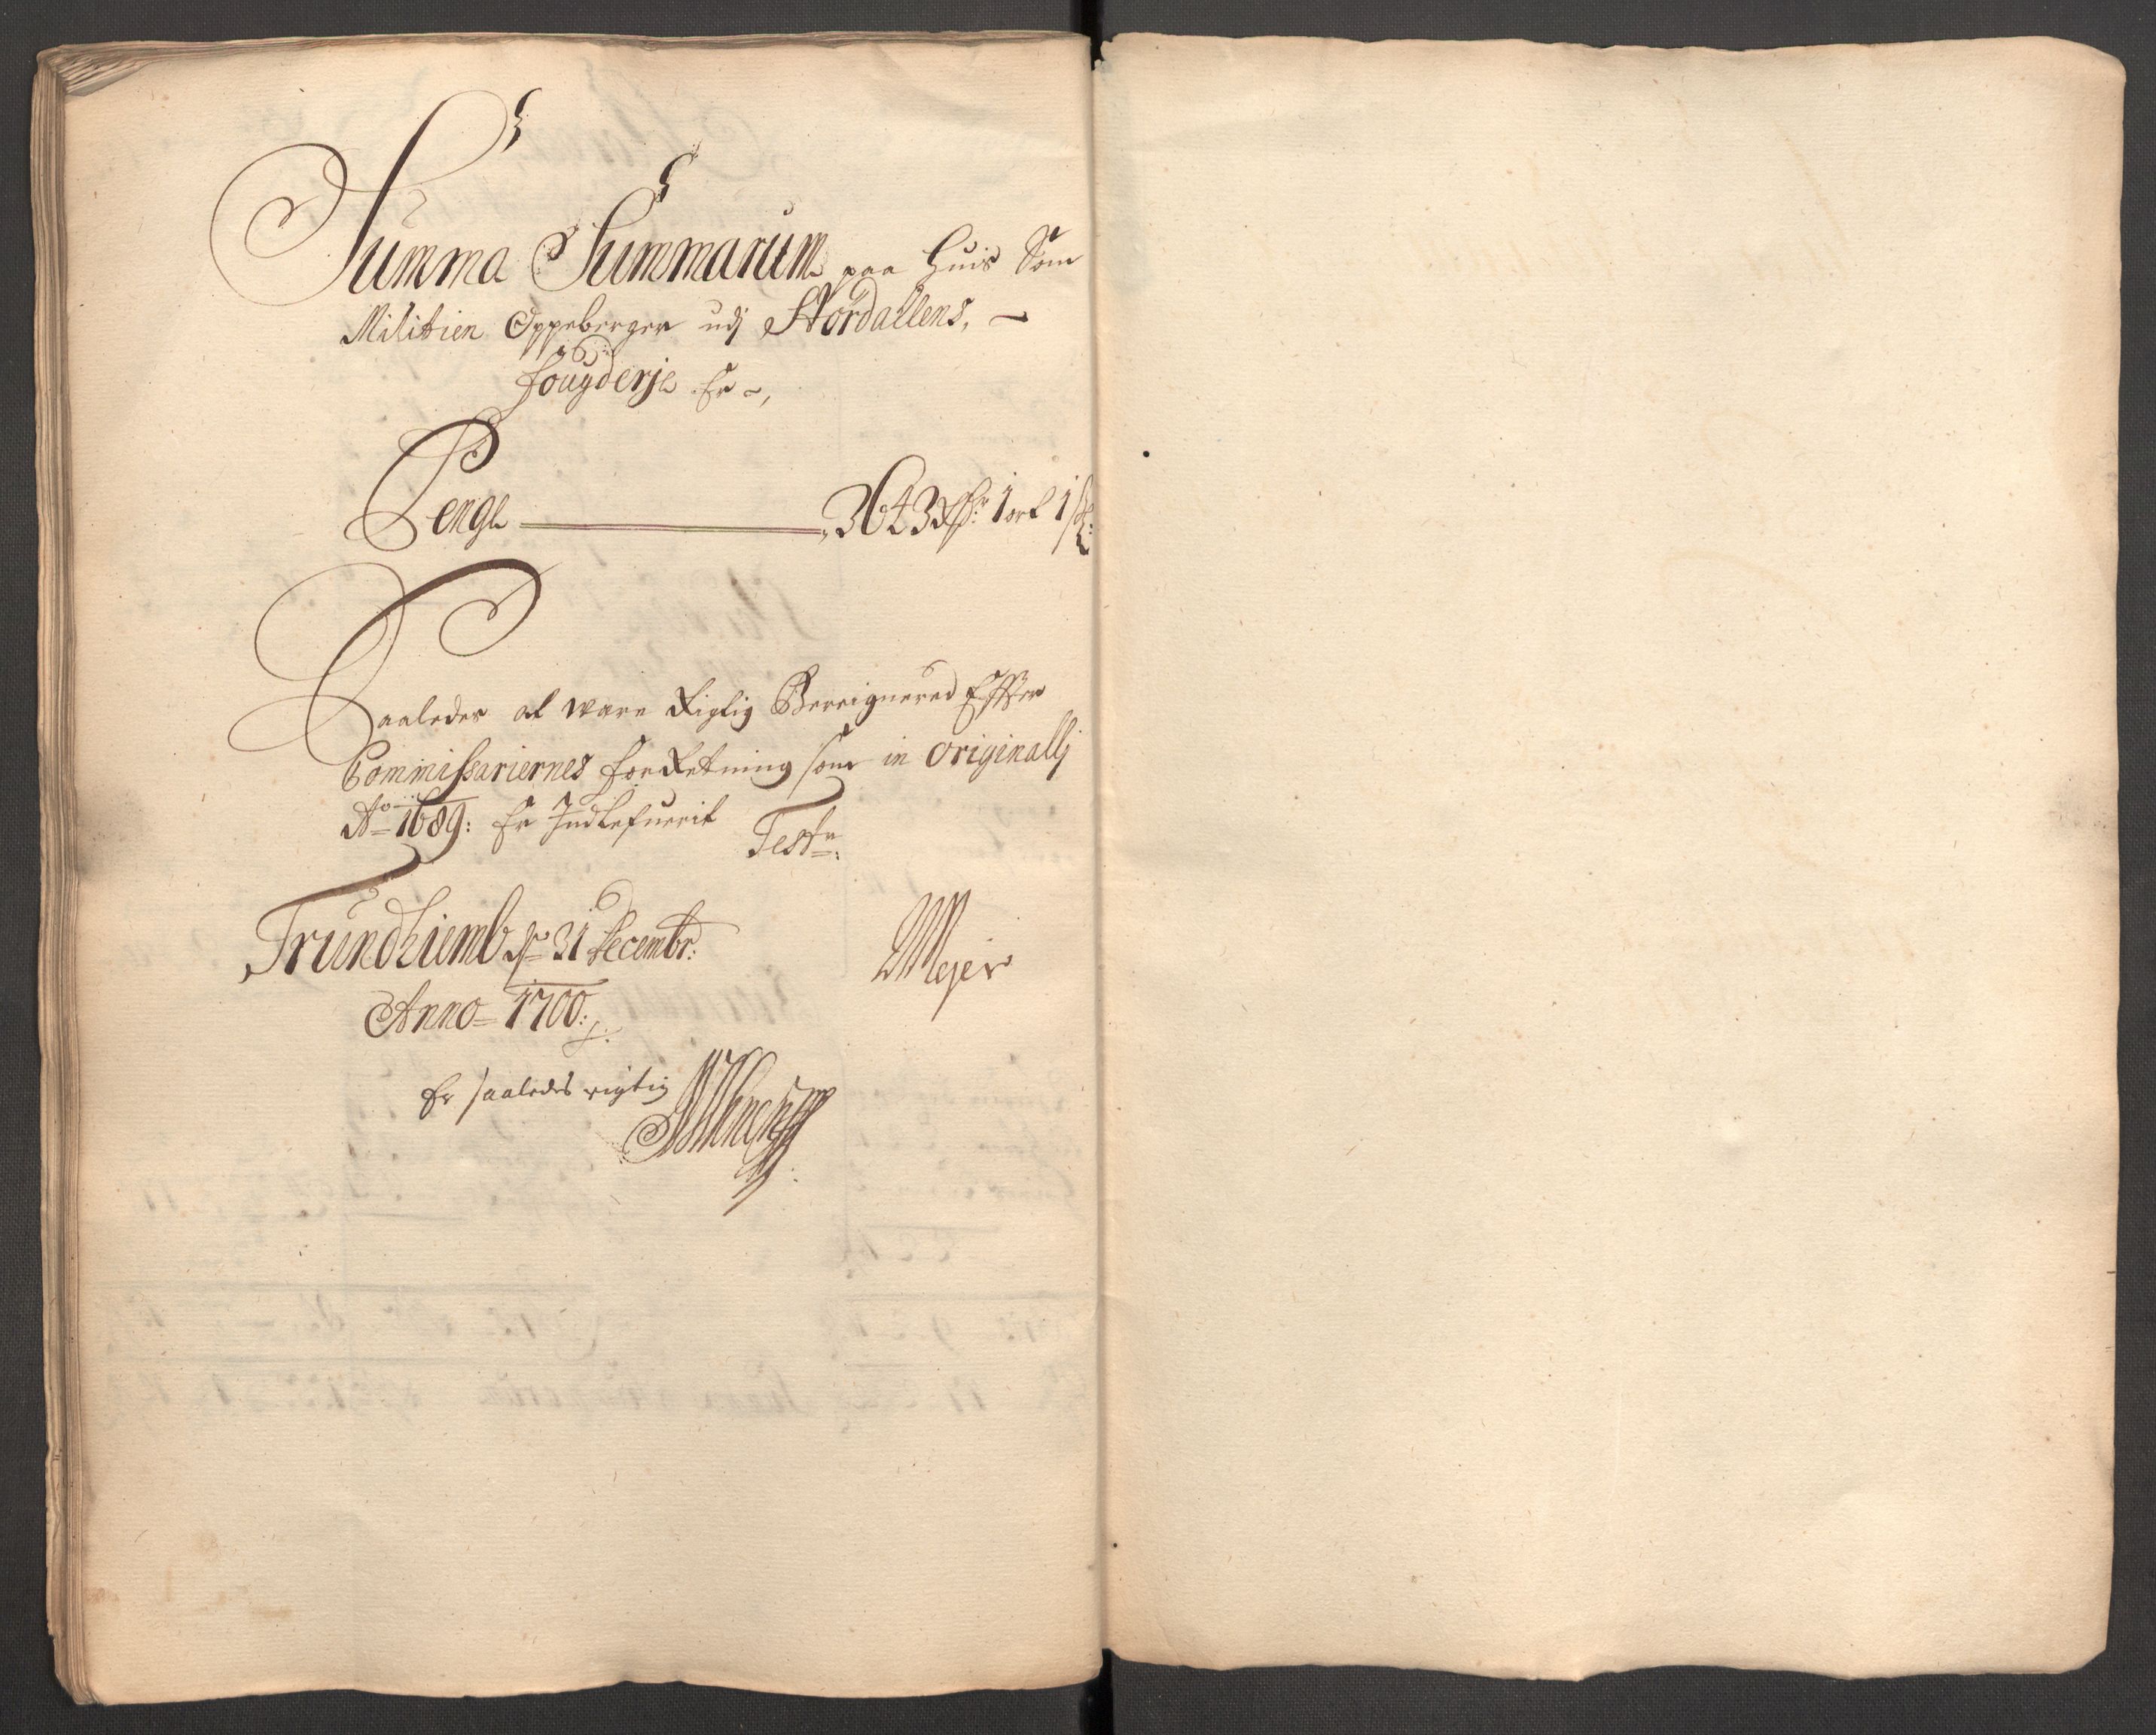 Summa Summarum paa huis Som
Militien Oppeberger udj Stördallens,
fougderje Er,
Penge 3643 Rdr: 1 ort 1 s:
Saaledes at være Rigtig Bereignered Effter
Commissariernes forRetning som in originallj
Ao 1689: Er Indlefuerit
Testr:
Trundhiemb dn 31 Decembr:
Anno 1700:
Mejer
Er saaledes rigtig